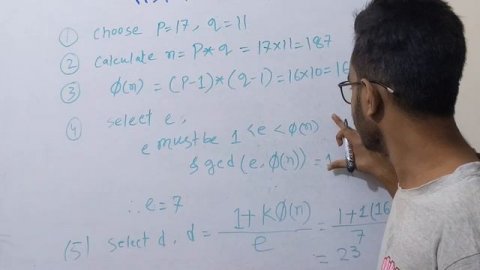 ① choose P=17, q=11
② Calculate n=P*q = 17×11=187
③ Φ(n) = (P-1)*(q-1)=16×10=16
④ select e,
e must be 1<e<Φ(n)
& gcd(e, Φ(n)) = 1
∴ e=7
(5) select d, d = 1+KΦ(n) / e = 1+1(16 / 7
= 23